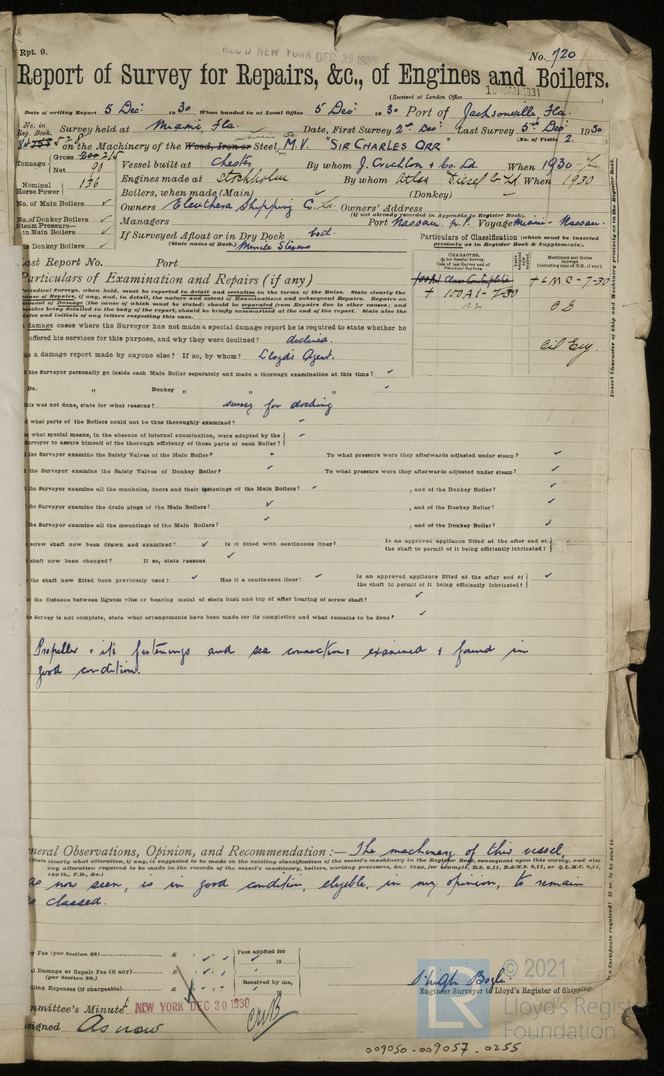 Rpt. 9.
REC'D NEW YORK DEC 30 1930
No. 720
Report of Survey for Repairs, &c., of Engines and Boilers.
(Received at London Office
Date of writing Report 5 Dec: 1930 When handed in at Local Office 5 Dec: 1930 Port of Jacksonville Fla.
No. in Reg. Book. Survey held at Miami, Fla. Date, First Survey 2nd Dec: Last Survey 5th Dec: 1930
(No. of Visits 2.
on the Machinery of the Wood, Iron or Steel M.V. "SIR CHARLES ORR"
Tonnage Gross 215
Net 90
Vessel built at Chester By whom J. Crichton & Co. Ld. When 1930
Nominal Horse Power 136
Engines made at Stockholm By whom Atlas Diesel Co. Ld. When 1930
No. of Main Boilers
Boilers, when made (Main) (Donkey)
Owners Eleuthera Shipping C. Ld. Owners' Address
(if not already recorded in Appendix to Register Book).
No. of Donkey Boilers
Managers Port Nassau, Voyage Miami - Nassau.
Steam Pressure—
in Main Boilers
If Surveyed Afloat or in Dry Dock both.
(State name of Dock.) Merrill Stevens
in Donkey Boilers
Particulars of Classification (which must be inserted
precisely as in Register Book & Supplements).
Last Report No. Port
Particulars of Examination and Repairs (if any)
CHARACTER.
Machinery and Boiler Surveys
(including date of N.B., if any).
+ 100A1 - 7-30
+ LMC - 7-30
OG
Oil Eng.
damage cases where the Surveyor has not made a special damage report he is required to state whether he
offered his services for this purpose, and why they were declined? declined.
as a damage report made by anyone else? If so, by whom? Lloyds Agent.
the Surveyor personally go inside each Main Boiler separately and make a thorough examination at this time?
Do. " Donkey " "
this was not done, state for what reasons? survey for docking
what parts of the Boilers could not be thus thoroughly examined?
what special means, in the absence of internal examination, were adopted by the
Surveyor to assure himself of the thorough efficiency of those parts of each Boiler?
the Surveyor examine the Safety Valves of the Main Boiler? To what pressure were they afterwards adjusted under steam?
the Surveyor examine the Safety Valves of Donkey Boiler? To what pressure were they afterwards adjusted under steam?
the Surveyor examine all the manholes, doors and their fastenings of the Main Boilers? , and of the Donkey Boiler?
the Surveyor examine the drain plugs of the Main Boilers? , and of the Donkey Boiler?
the Surveyor examine all the mountings of the Main Boilers? , and of the Donkey Boiler?
screw shaft now been drawn and examined? Is it fitted with continuous liner? Is an approved appliance fitted at the after end of
the shaft to permit of it being efficiently lubricated?
shaft now been changed? If so, state reasons
the shaft now fitted been previously used? Has it a continuous liner? Is an approved appliance fitted at the after end of
the shaft to permit of it being efficiently lubricated?
the distance between lignum vitæ or bearing metal of stern bush and top of after bearing of screw shaft?
the Survey is not complete, state what arrangements have been made for its completion and what remains to be done?
Propeller & it's fastenings and sea connections examined & found in
good condition.
General Observations, Opinion, and Recommendation :— The machinery of this vessel,
(State clearly what alteration, if any, is suggested to be made in the existing classification of the vessel's machinery in the Register Book, consequent upon this survey, and also
any alteration required to be made in the records of the vessel's machinery, boilers, working pressures, &c.
as now seen, is in good condition, eligible, in my opinion, to remain
classed.
Fee (per Section 28) £ Fees applied for
19
Damage or Repair Fee (if any) £
(per Section 28.)
Received by me,
Travelling Expenses (if chargeable) £ 19
Hugh Bogle
Engineer Surveyor to Lloyd's Register of Shipping
Committee's Minute NEW YORK DEC 30 1930
Assigned As now
© 2021
Lloyd's Register
Foundation
009050-009057-0255